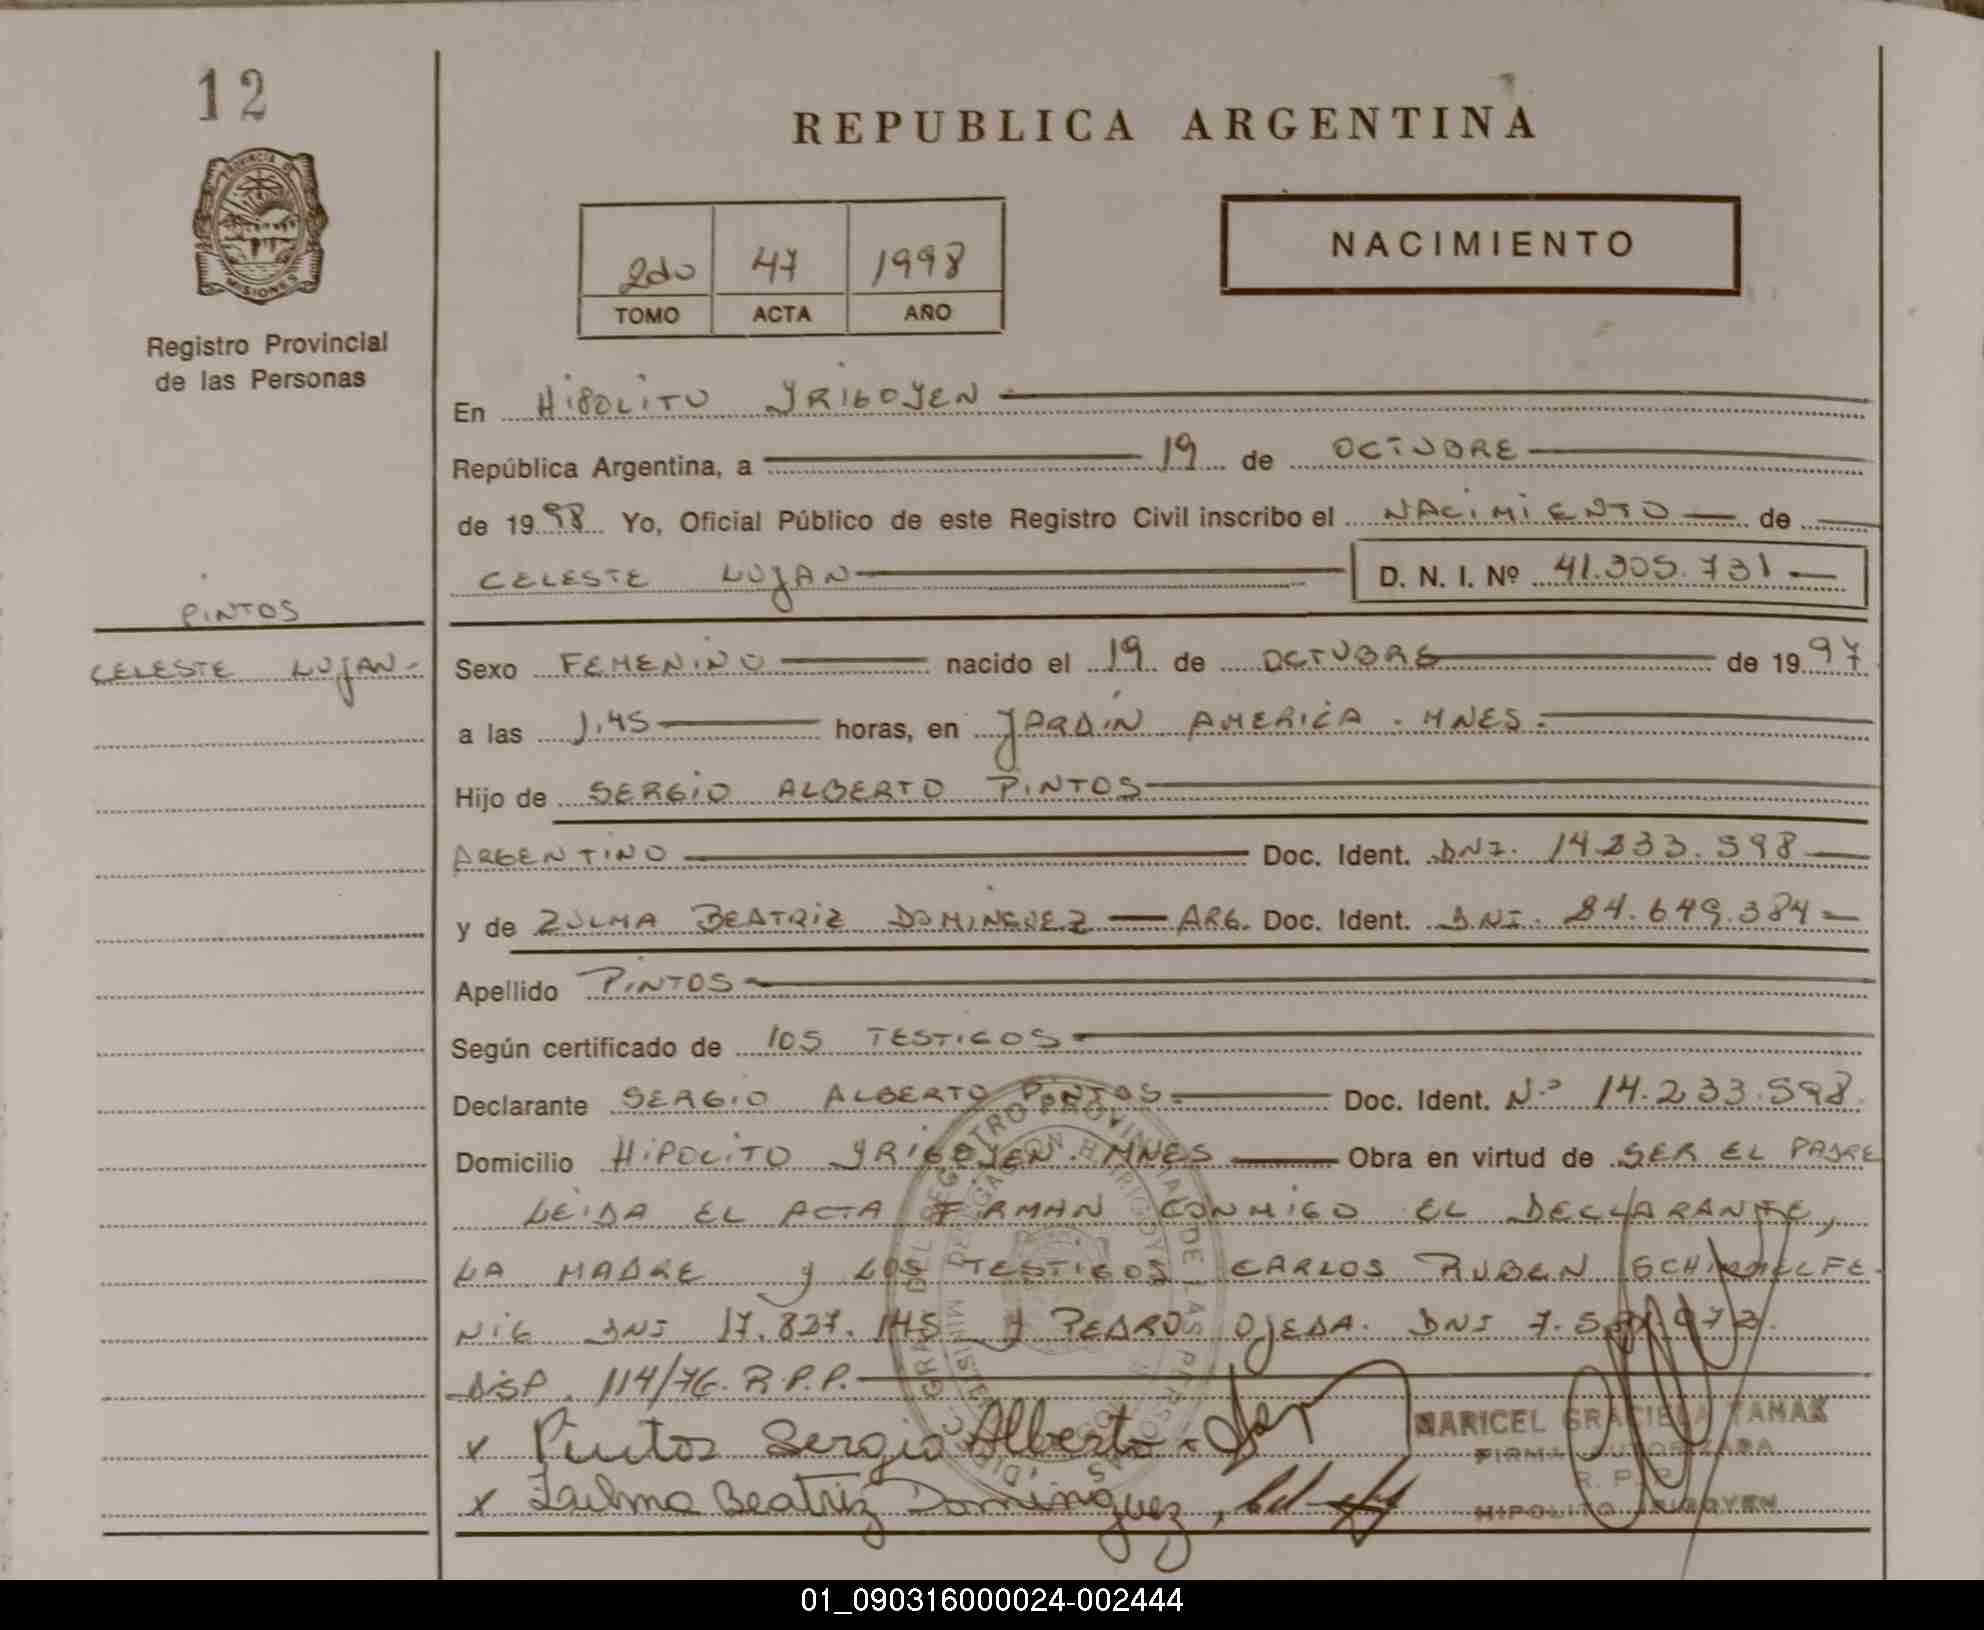 12
REPUBLICA ARGENTINA
PROVINCIA DE
MISIONES
Registro Provincial
de las Personas
2do 47 1998
TOMO ACTA AÑO
NACIMIENTO
En HIPOLITO YRIGOYEN
República Argentina, a 19 de OCTUBRE
de 1998 Yo, Oficial Público de este Registro Civil inscribo el NACIMIENTO de
CELESTE LUJAN D. N. I. Nº 41.305.731
PINTOS
CELESTE LUJAN-
Sexo FEMENINO nacido el 19 de OCTUBRE de 1997
a las 1,45 horas, en JARDIN AMERICA . MNES.
Hijo de SERGIO ALBERTO PINTOS
ARGENTINO Doc. Ident. DNI. 14.233.598
y de ZULMA BEATRIZ DOMINGUEZ ARG. Doc. Ident. DNI. 24.649.384
Apellido PINTOS
Según certificado de los TESTIGOS
Declarante SERGIO ALBERTO PINTOS. Doc. Ident. Nº 14.233.598
Domicilio HIPOLITO YRIGOYEN. MNES Obra en virtud de SER EL PADRE
LEIDA EL ACTA FIRMAN CONMIGO EL DECLARANTE,
LA MADRE y LOS TESTIGOS CARLOS RUBEN SCHIMMELFE-
NIG DNI 17.827.145 y PEDRO OJEDA. DNI
DISP. 114/76. R.P.P.
x Pintos Sergio Alberto
x Zulma Beatriz Dominguez,
MARICEL GRACIELA TANAK
FIRMA AUTORIZADA
R. P. P.
HIPOLITO YRIGOYEN
01_090316000024-002444